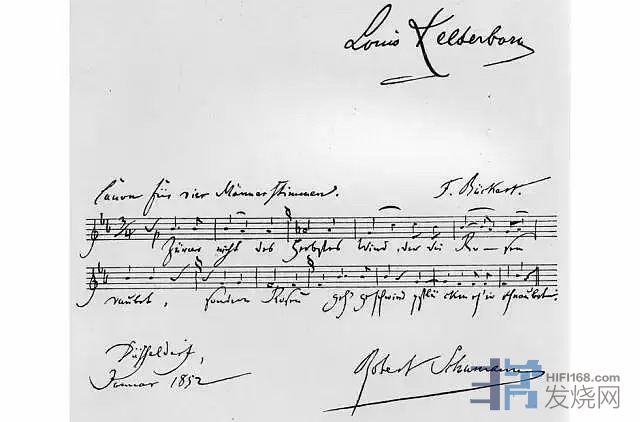 Louis Kelterborn
Canon für vier Männerstimmen. F. Rückert.
3/4
Zürne nicht des Herbstes Wind, der die Ro-sen
raubet, sondern Rosen geh' geschwind pflücken eh' er schnaubet.
Düsseldorf,
Januar 1852
Robert Schumann
HIFI168.com
发烧网